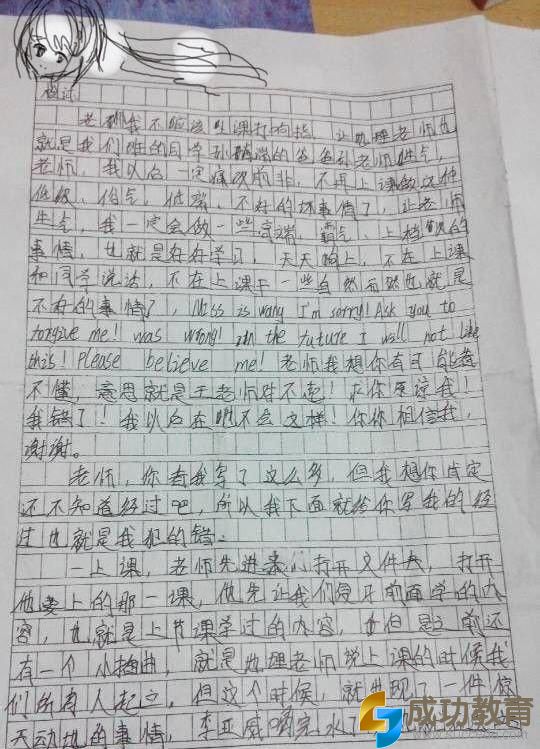 检讨
老师我不应该上课打响指，让地理老师也
就是我们班的同学孙 的 色 老师生气，
老师，我以后一定痛改前非，不再上课做这种
低级，俗气，低 ，不好的坏事情了，让老师
生气，我一定会做一些高端，霸气，上档次的
事情，也就是好好学习，天天向上，不在上课
和同学说话，不在上课干一些自然而然也就是
不好的事情了，Miss is wang I'm sorry! Ask you to
forgive me! was wrong! in the future I will not like
this! Please believe me! 老师我想你有可能看
不懂，意思就是王老师对不起！求你原谅我！
我错了！我以后在 不会这样！你 相信我，
谢谢。
老师，你看我写了这么多，但我想你肯定
还不知道经过吧，所以我下面就给你写我的经
过也就是我犯的错。
一上课，老师先进 打开文件夹，打开
他要上的那一课，他先让我们复习前面学的内
容，也就是上节课学过的内容， 但是 前还
有一个小插曲，就是地理老师说上课的时候我
们所有人起立，但这个时候，就发现了一件惊
天动地的事情 李亚威喝完水了
成功教育